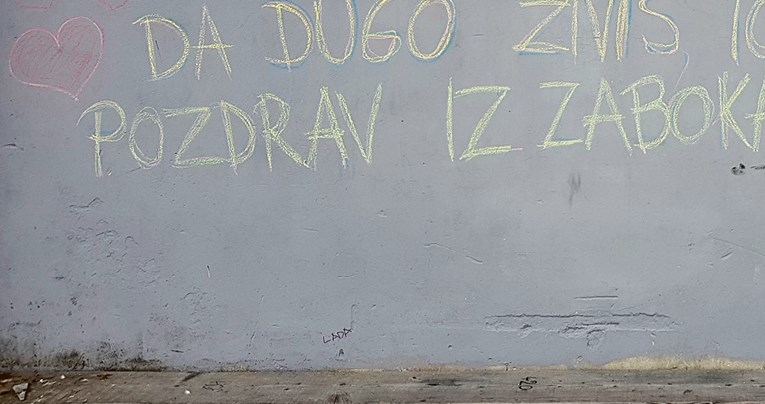 DA DUGO ŽIVIŠ
POZDRAV IZ ZABOKA
LADA